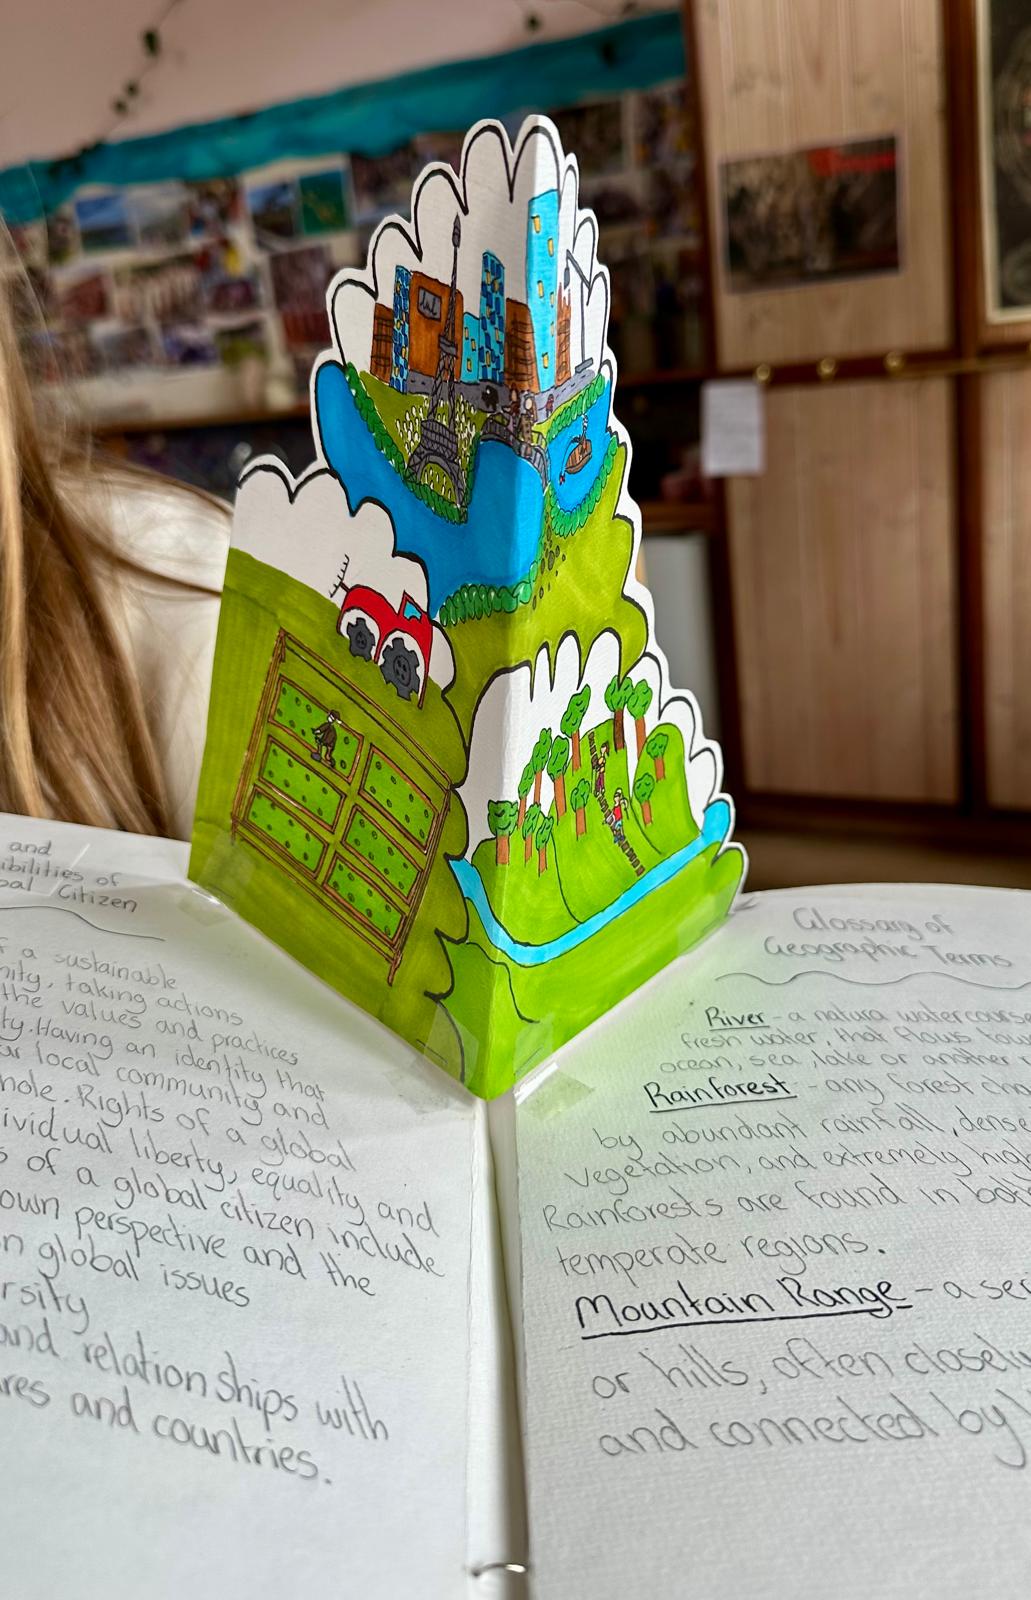 and
ibilities of
bal Citizen
of a sustainable
nity, taking actions
the values and practices
ty. Having an identity that
ur local community and
hole. Rights of a global
ividual liberty, equality and
s of a global citizen include
own perspective and the
on global issues
rsity
and relationships with
res and countries.
Glossary of
Geographic Terms
River - a natura watercourse
fresh water, that flows
ocean, sea, lake or another
Rainforest - any forest cha
by abundant rainfall, dense
vegetation, and extremely high
Rainforests are found in both
temperate regions.
Mountain Range - a seri
or hills, often closely
and connected by